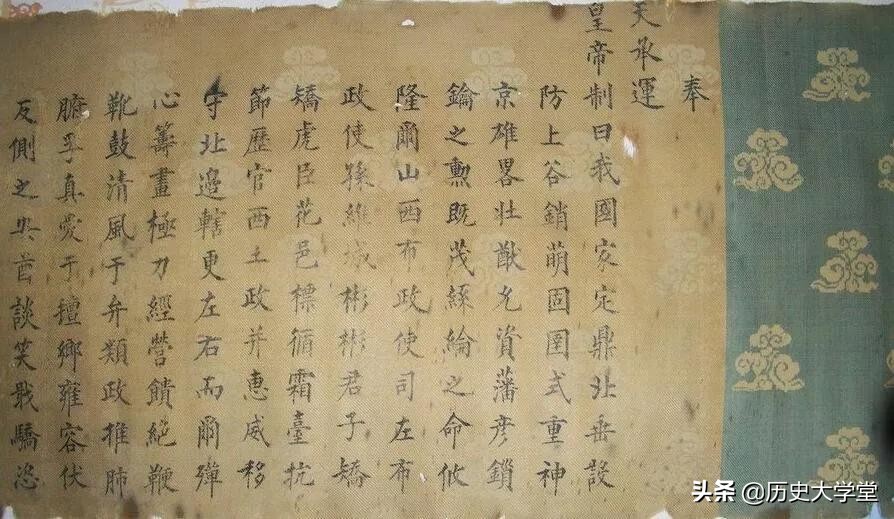 奉
天承運
皇帝制曰我國家定鼎北垂設
防上谷銷萌固圉式重神
京雄畧壯猷允資藩彥鎖
鑰之勳既茂絲綸之命攸
隆爾山西布政使司左布
政使孫維城彬彬君子矯
矯虎臣花邑標循霜臺抗
節歷官西土政并惠威移
守北邉轄更左右而爾殫
心籌畫極力經營饋絕鞭
靴鼓清風于弁類政推肺
腑孚真愛于氊鄉雍容伏
反側之酋談笑戢驕恣
头条 @历史大学堂